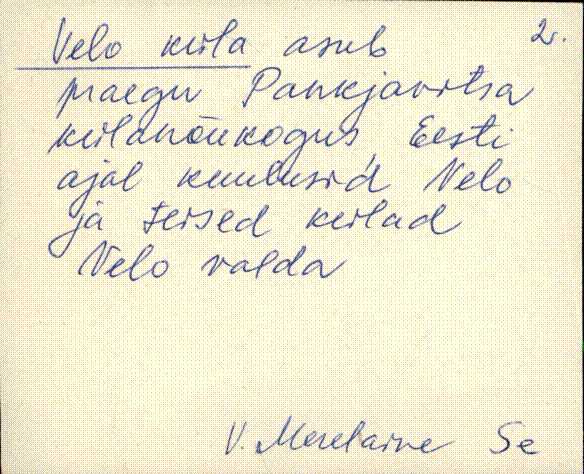 2.
Velo küla asub
praegu Pankjavitsa
külanõukogus, Eesti
ajal kuulusid Velo
ja teised külad
Velo valda
V. Merelaine Se